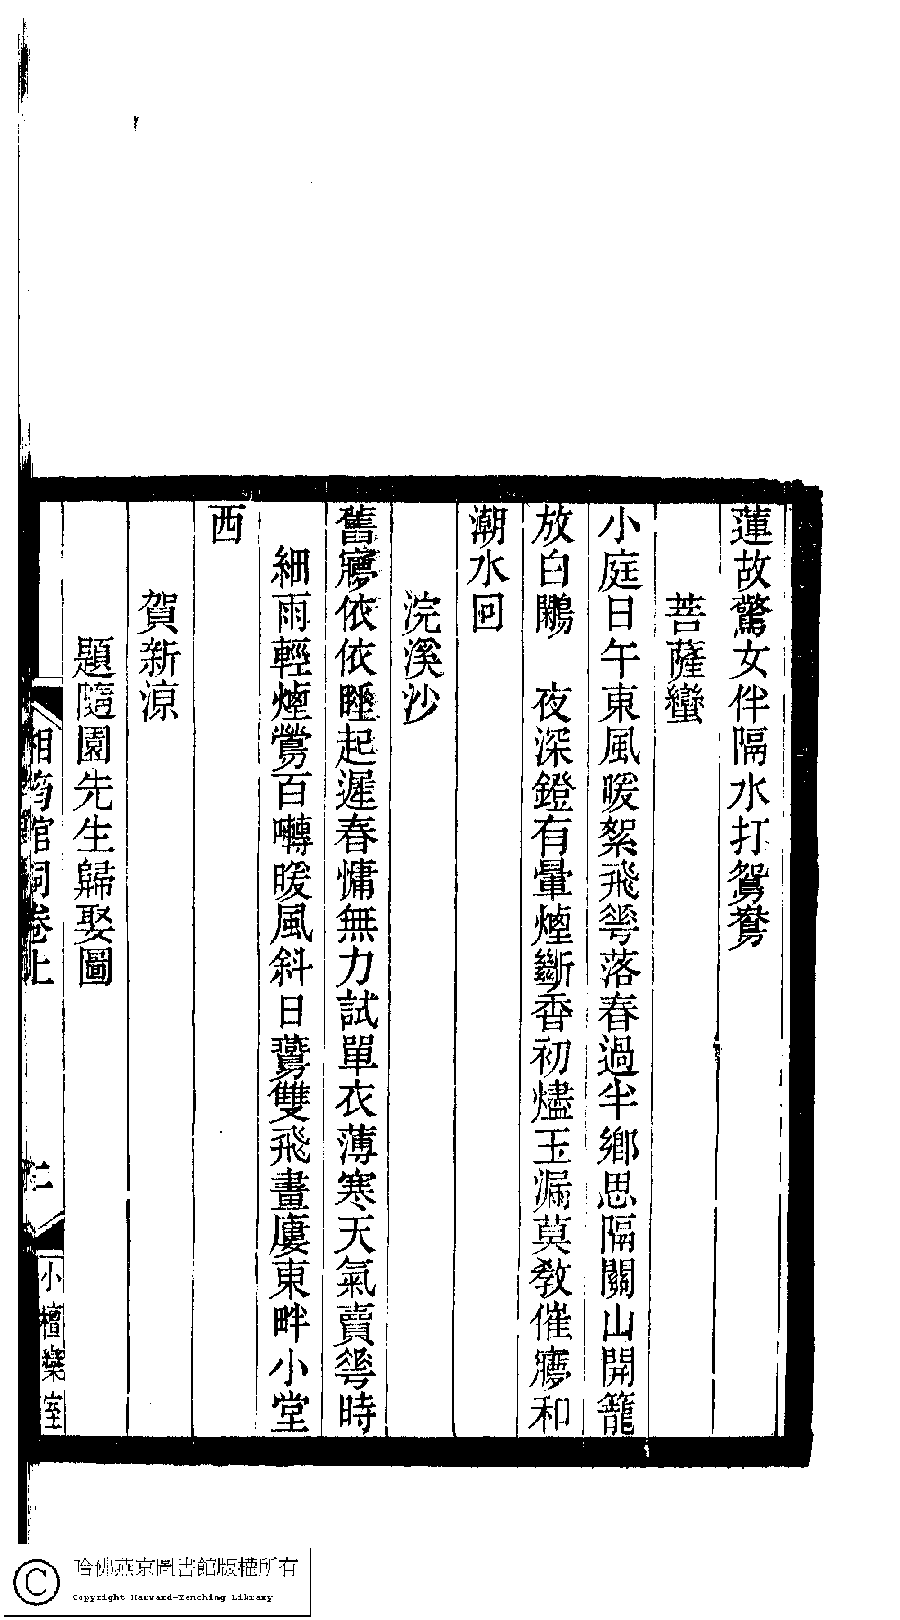 蓮故驚女伴隔水打鴛鴦
菩薩蠻
小庭日午東風暖絮飛蕚落春過半鄉思隔關山開籠
放白鷴　夜深鐙有暈煙斷香初燼玉漏莫敎催㝱和
潮水回
浣溪沙
舊㝱依依睡起遲春慵無力試單衣薄寒天氣賣蕚時
細雨輕煙鶯百囀暖風斜日鷰雙飛畫廔東畔小堂
西
賀新涼
題隨園先生歸娶圖
湘筠館詞卷上
二
小檀欒室
哈佛燕京圖書館版權所有
Copyright Harvard-Yenching Library